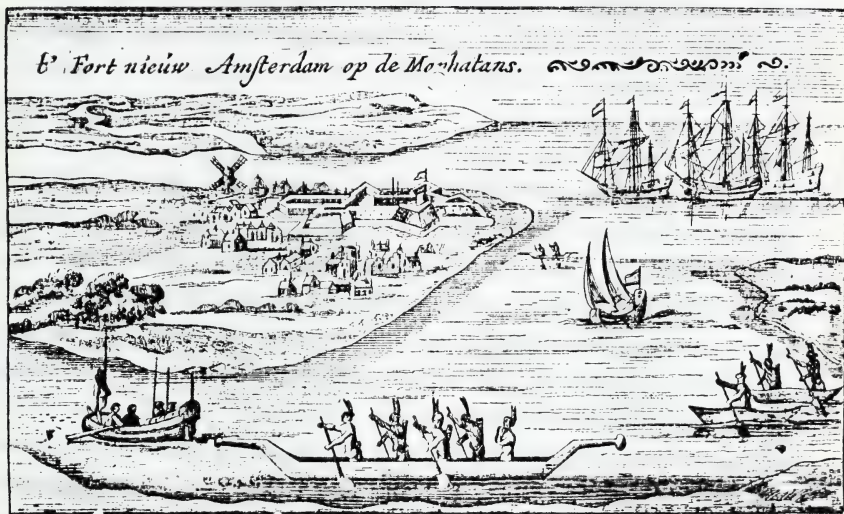 t' Fort nieuw Amsterdam op de Manhatans.